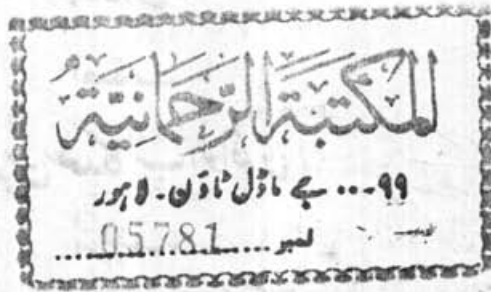 المكتبة الرحمانية
۹۹... جے ماڈل ٹاؤن۔ لاہور
نمبر.....05781.....